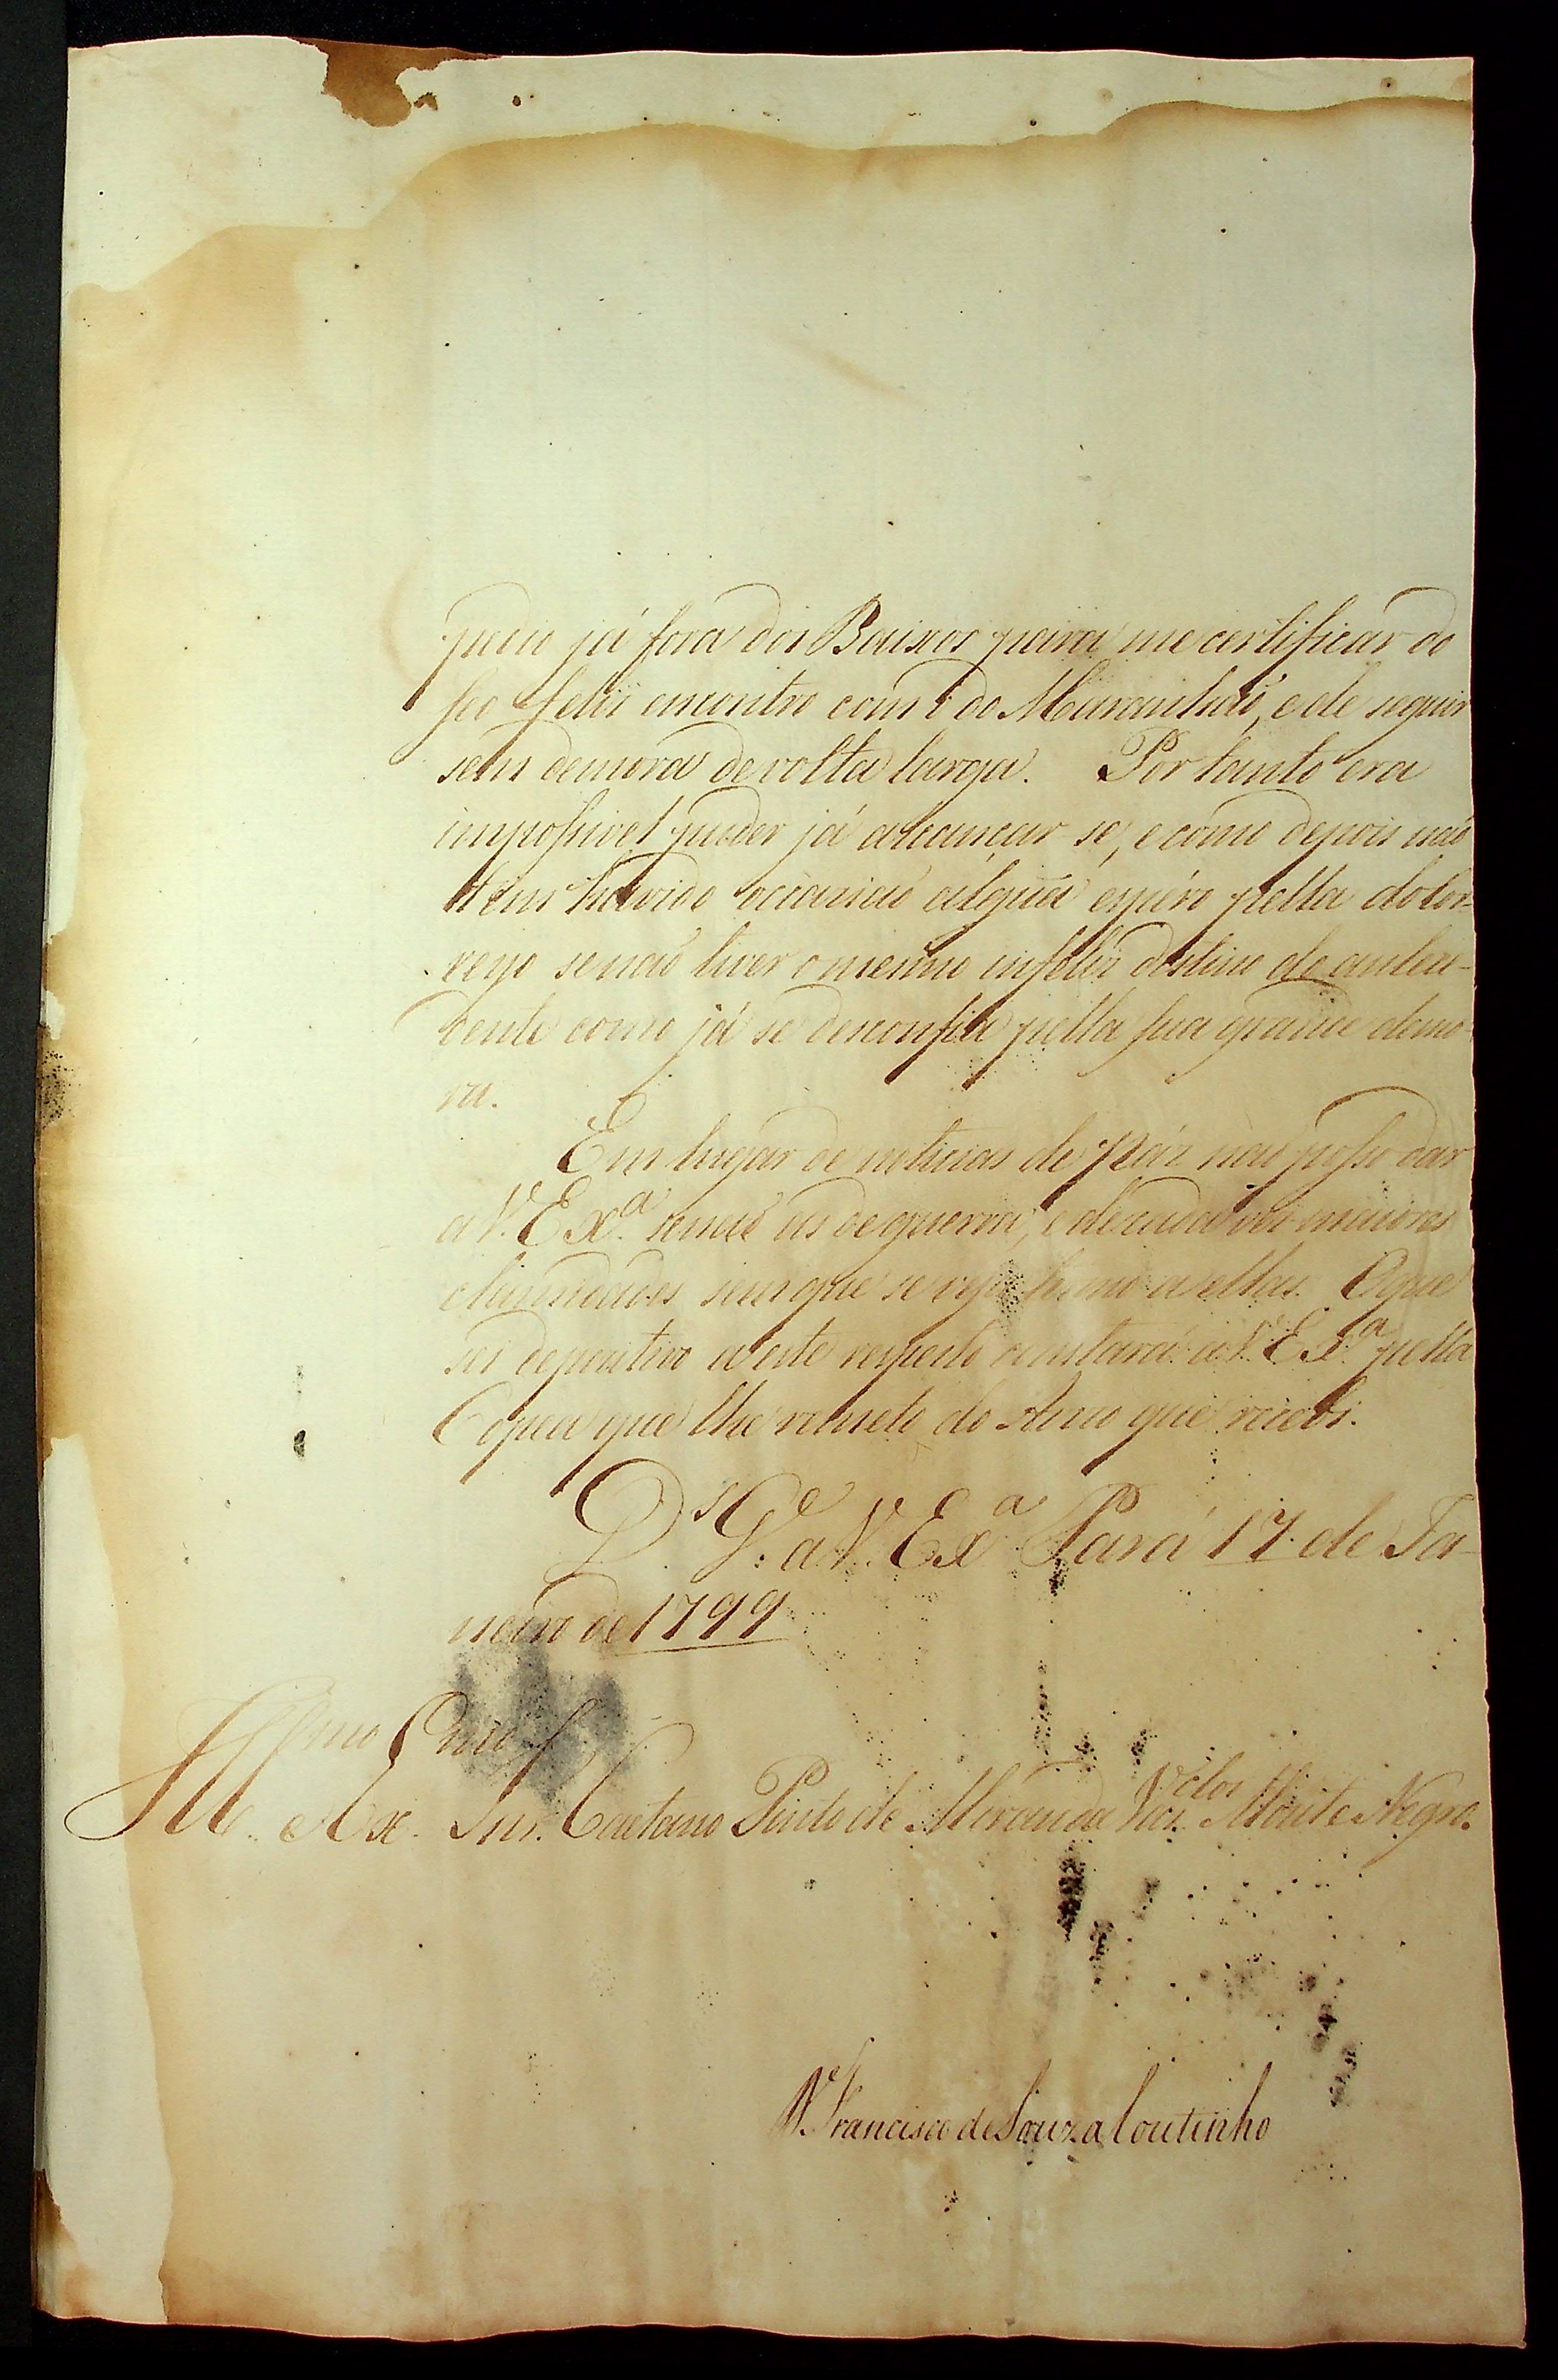 pedio já fora dos Baixos para me certificar do
seo feliz encontro com o do Maranhaõ, e de seguir
sem demora de volta larga. Por tanto era
impossivel puder já alcançar-se, e como depois naõ
tem havido occasiaõ algũa espéro pella do Cor-
reyo se naõ tiver o mesmo infeliz destino do antece-
dente como já se desconfia pella sua grande demo-
ra.
Em lugar de noticias de Páz naõ posso dar
a V. Exª. senaõ as de guerra, e de cada vez maiores
calamidades sem que se veja termo a ellas. O que
sei de pozitivo a este respeito constará a V. Exª pella
Copea que lhe remeto do Avizo que recebi.
Dˢ. Gᵉ. a V. Exª Pará 17. de Ja-
neiro de 1799
Illᵐᵒ. e Exᵐᵒ. Snr. Caetano Pinto de Miranda Vasᶜᵒˢ. Monte Negro.
D. Francisco de Souza Coutinho